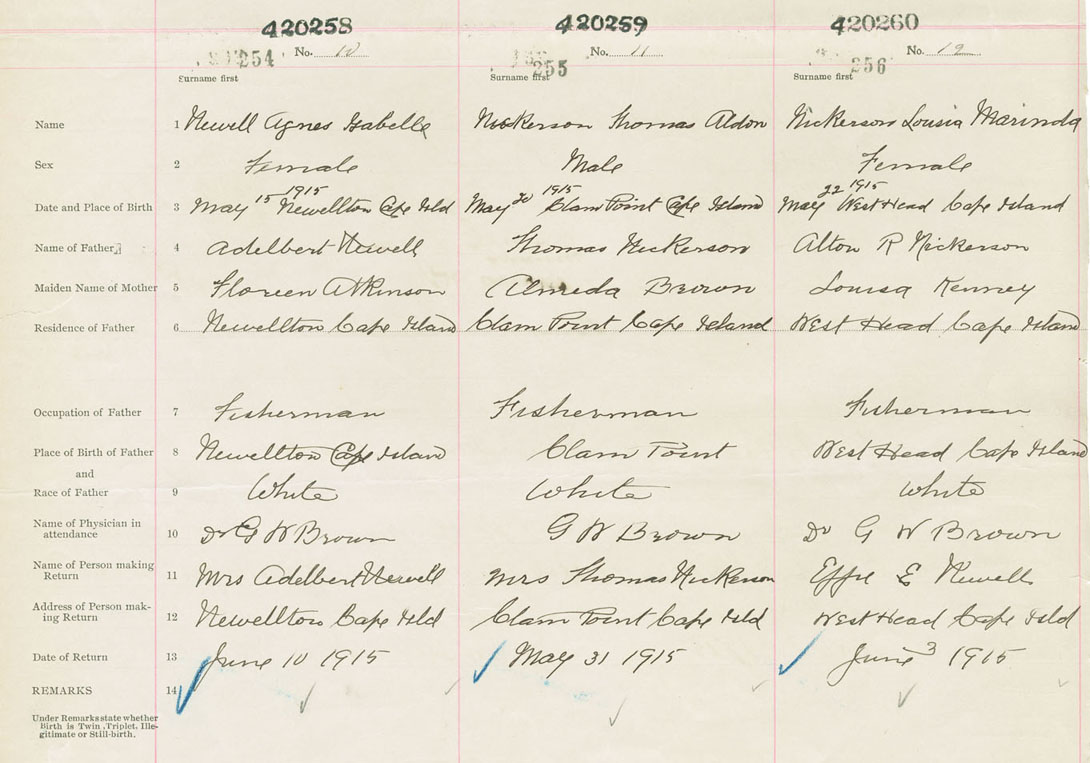 420258 420259 420260
254 No. 10 255 No. 11 256 No. 12
Surname first Surname first Surname first
Name 1 Newell Agnes Isabelle Nickerson Thomas Aldon Nickerson Lousia Marinda
Sex 2 Female Male Female
1915 1915 22 1915
Date and Place of Birth 3 May 15 Newellton Cape Isld May 20 Clam Point Cape Island May West Head Cape Island
Name of Father 4 Adelbert Newell Thomas Nickerson Alton R Nickerson
Maiden Name of Mother 5 Floreen Atkinson Almeda Brown Louisa Kenney
Residence of Father 6 Newellton Cape Island Clam Point Cape Island West Head Cape Island
Occupation of Father 7 Fisherman Fisherman Fisherman
Place of Birth of Father 8 Newellton Cape Island Clam Point West Head Cape Island
and
Race of Father 9 White White White
Name of Physician in
attendance 10 Dr G W Brown G W Brown Dr G W Brown
Name of Person making
Return 11 Mrs Adelbert Newell Mrs Thomas Nickerson Effie E Newell
Address of Person mak-
ing Return 12 Newellton Cape Isld Clam Point Cape Isld West Head Cape Isld
Date of Return 13 June 10 1915 May 31 1915 June 3 1915
REMARKS 14
Under Remarks state whether
Birth is Twin, Triplet, Ille-
gitimate or Still-birth.